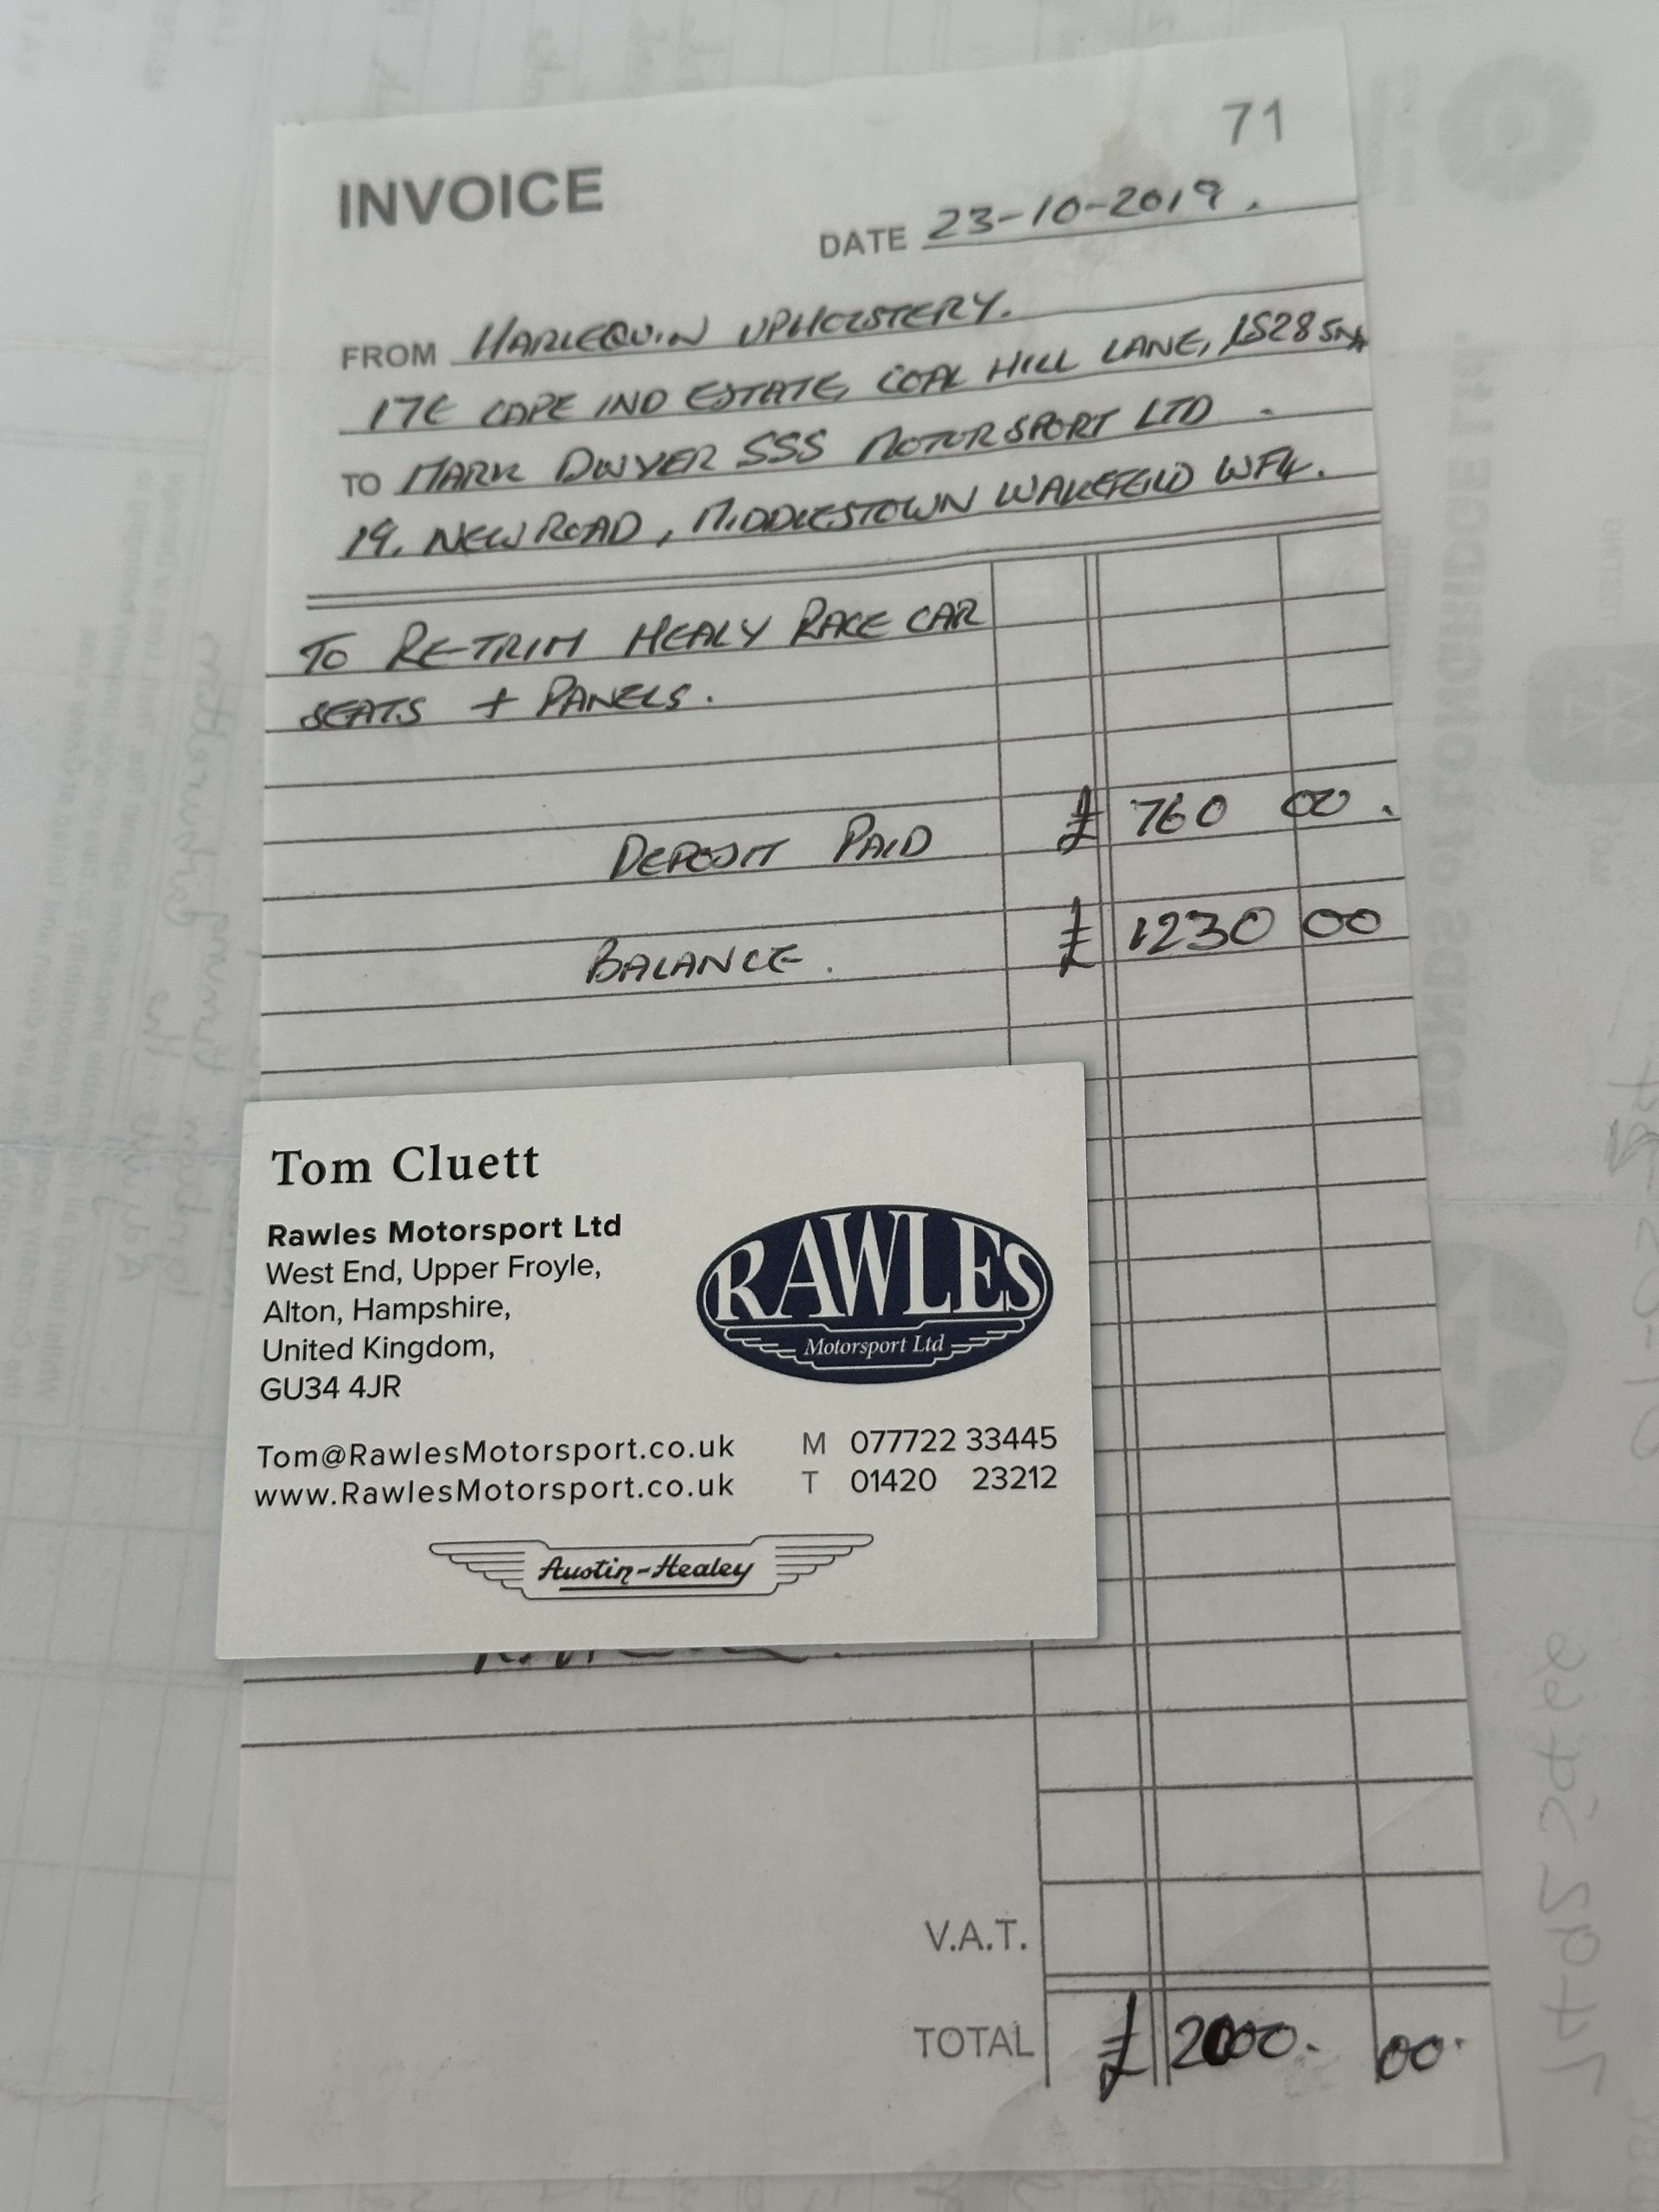 71
INVOICE
DATE 23-10-2019.
FROM HARLEQUIN UPHOLSTERY.
17E CAPE IND ESTATE, COAL HILL LANE, LS28 5NA
TO MARK DWYER SSS MOTORSPORT LTD.
19, NEW ROAD, MIDDLESTOWN WAKEFEILD WF4.
TO RE-TRIM HEALY RACE CAR
SEATS + PANELS.
DEPOSIT PAID £ 760 00.
BALANCE. £ 1230 00
Tom Cluett
Rawles Motorsport Ltd
West End, Upper Froyle,
Alton, Hampshire,
United Kingdom,
GU34 4JR
RAWLES
Motorsport Ltd
Tom@RawlesMotorsport.co.uk M 077722 33445
www.RawlesMotorsport.co.uk T 01420 23212
Austin-Healey
V.A.T.
TOTAL £ 2000. 00.